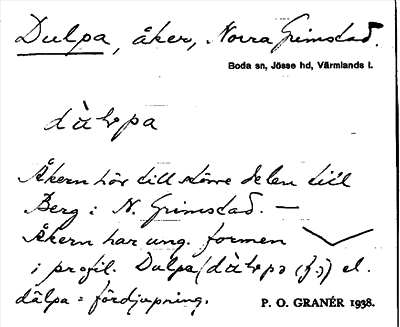 Dulpa, åker, Norra Grimstad.
Boda sn, Jösse hd, Värmlands l.
dàɫpa
Åkern hör till större delen till
Berg i N. Grimstad. —
Åkern har ung. formen
i profil. Dulpa (dàɫpə (f.)) el.
dälpa = fördjupning.
P. O. GRANÉR 1938.